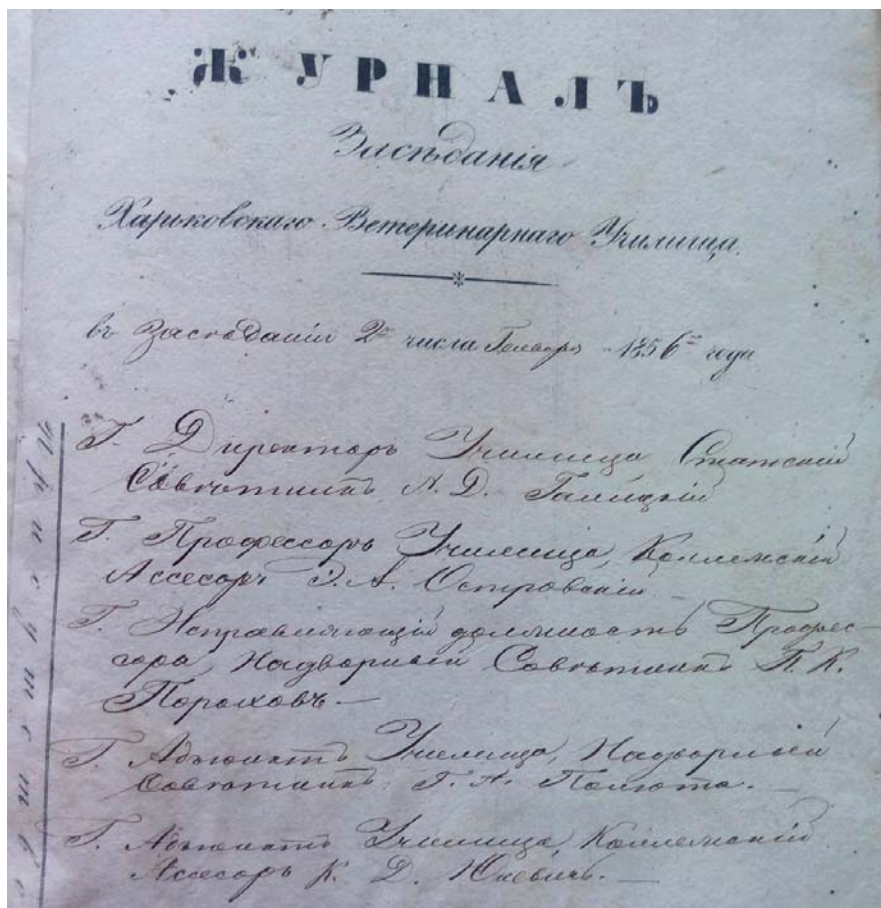 ЖУРНАЛЪ
Засѣданія
Харьковскаго Ветеринарнаго Училища.
въ Засѣданіи 2го числа Генваря 1856го года
Г. Директоръ Училища Статскій
Совѣтникъ А. Д. Галицкій
Г. Профессоръ Училища, Коллежскій
Ассесоръ Э. А. Островскій
Г. Исправляющій должность Профес-
сора, Надворный Совѣтникъ П. К.
Пороховъ.—
Г. Адъюнктъ Училища, Надворный
Совѣтникъ Г. А. Полюта.—
Г. Адъюнктъ Училища, Коллежскій
Ассесоръ К. Д. Юневичъ.—